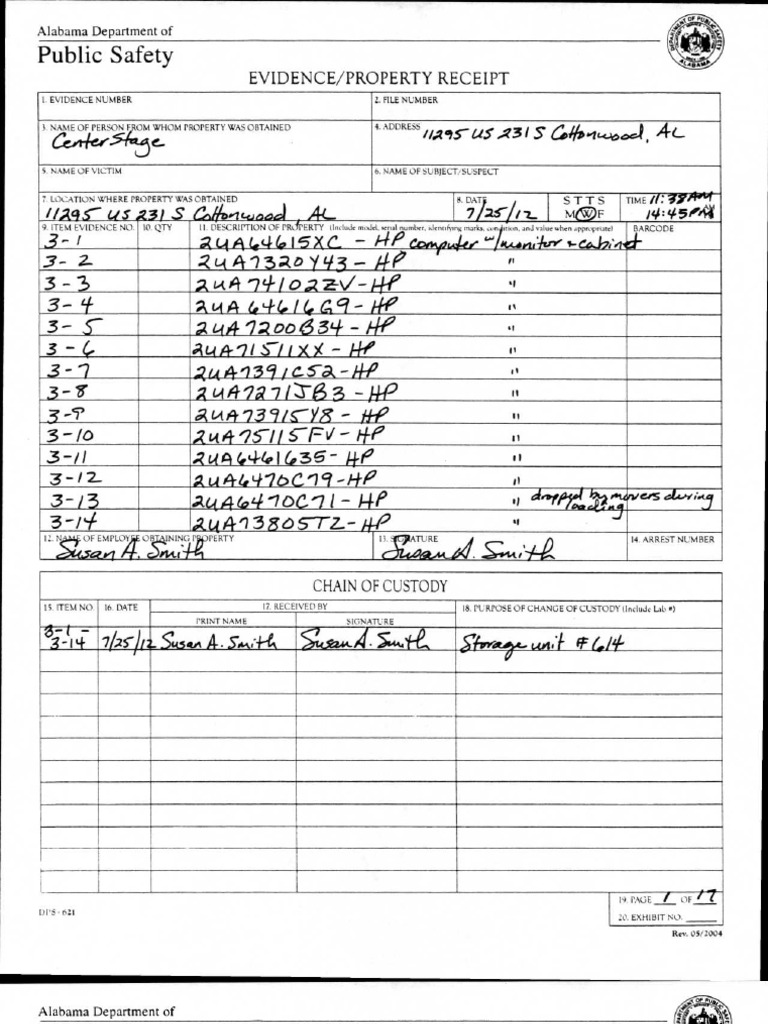 Alabama Department of
Public Safety
EVIDENCE/PROPERTY RECEIPT
1. EVIDENCE NUMBER
2. FILE NUMBER
3. NAME OF PERSON FROM WHOM PROPERTY WAS OBTAINED
Center Stage
4. ADDRESS 11295 US 231 S Cottonwood, AL
5. NAME OF VICTIM
6. NAME OF SUBJECT/SUSPECT
7. LOCATION WHERE PROPERTY WAS OBTAINED
11295 US 231 S Cottonwood, AL
8. DATE
7/25/12
S T T S
M W F
TIME 11:38AM
14:45PM
9. ITEM EVIDENCE NO. 10. QTY 11. DESCRIPTION OF PROPERTY (Include model, serial number, identifying marks, condition, and value when appropriate) BARCODE
3-1 2UA64615XC - HP computer w/monitor + cabinet
3-2 2UA7320Y43-HP "
3-3 2UA74102ZV-HP "
3-4 2UA64616G9-HP "
3-5 2UA7200B34-HP "
3-6 2UA71511XX-HP "
3-7 2UA7391C52-HP "
3-8 2UA7271JB3-HP "
3-9 2UA73915Y8-HP "
3-10 2UA75115FV-HP "
3-11 2UA6461635-HP "
3-12 2UA6470C79-HP "
3-13 2UA6470C71-HP " dropped by movers during loading
3-14 2UA73805TZ-HP "
12. NAME OF EMPLOYEE OBTAINING PROPERTY
Susan A. Smith
13. SIGNATURE
Susan A. Smith
14. ARREST NUMBER
CHAIN OF CUSTODY
15. ITEM NO. 16. DATE 17. RECEIVED BY 18. PURPOSE OF CHANGE OF CUSTODY (Include Lab #)
PRINT NAME SIGNATURE
3-1-
3-14 7/25/12 Susan A. Smith Susan A. Smith Storage unit #614
19. PAGE 1 OF 17
20. EXHIBIT NO.
DPS-621
Rev. 05/2004
Alabama Department of